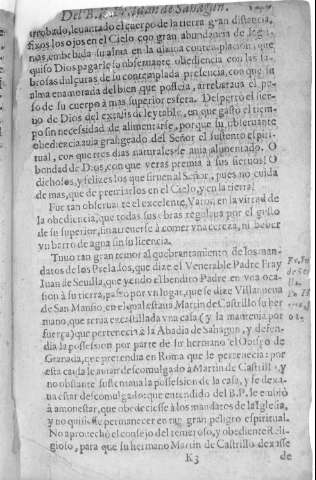 Del B. P. F. Juan de Sahagun.
arrobado, leuantado el cuerpo de la tierra gran distancia,
fixos los ojos en el Cielo con gran abundancia de lagri-
mas, embebida su alma en la diuina contemplacion; que
quiso Dios pagarle su obseruante obediencia con las sa-
brosas dulçuras de su contemplada presencia, con que su
alma enamorada del bien que posseia, arrebataua el pe-
so de su cuerpo à mas superior esfera. Despertò el sier-
uo de Dios del extasis de ley table, en que gastò el tiem-
po sin necesidad de alimentarse, porque su obseruante
obediencia auia grangeado del Señor el sustento espiri-
tual, con que tres dias naturales le auia alimentado. O
bondad de Dios, con que veras premia à sus sieruos! O
dichosos, y felizes los que siruen al Señor, pues no cuida
de mas, que de premiarlos en el Cielo, y en la tierra!
Fue tan obseruante el excelente Varon en la virtud de
la obediencia, que todas sus obras regulaua por el gusto
de su superior, sin atreuerse à comer vna cereza, ni beber
vn barro de agua sin su licencia.
Tuuo tan gran temor al quebrantamiento de los man-
datos de los Prelados, que dize el Venerable Padre Fray
Juan de Seuilla, que yendo el bendito Padre en vna oca-
sion à su tierra, passò por vn lugar, que se dize Villanueua
de San Mansio, en el qual estaua Martin de Castrillo su her-
mano, que tenia encastillada vna casa (y la mantenia por
fuerça) que pertenecia à la Abadia de Sahagun, y defen-
dia la possession por parte de su hermano el Obispo de
Granada, que pretendia en Roma que le pertenecia: por
esta causa le auian descomulgado à Martin de Castrillo, y
no obstante sustentaua la possession de la casa, y se dexa-
ua estar descomulgado: que entendido del B. P. le embiò
à amonestar, que obedeciesse à los mandatos de la Iglesia,
y no quisiesse permanecer en tan gran peligro espiritual.
No aprouechò el consejo del temeroso, y obediente Reli-
gioso, para que su hermano Martin de Castrillo dexasse
K3 de